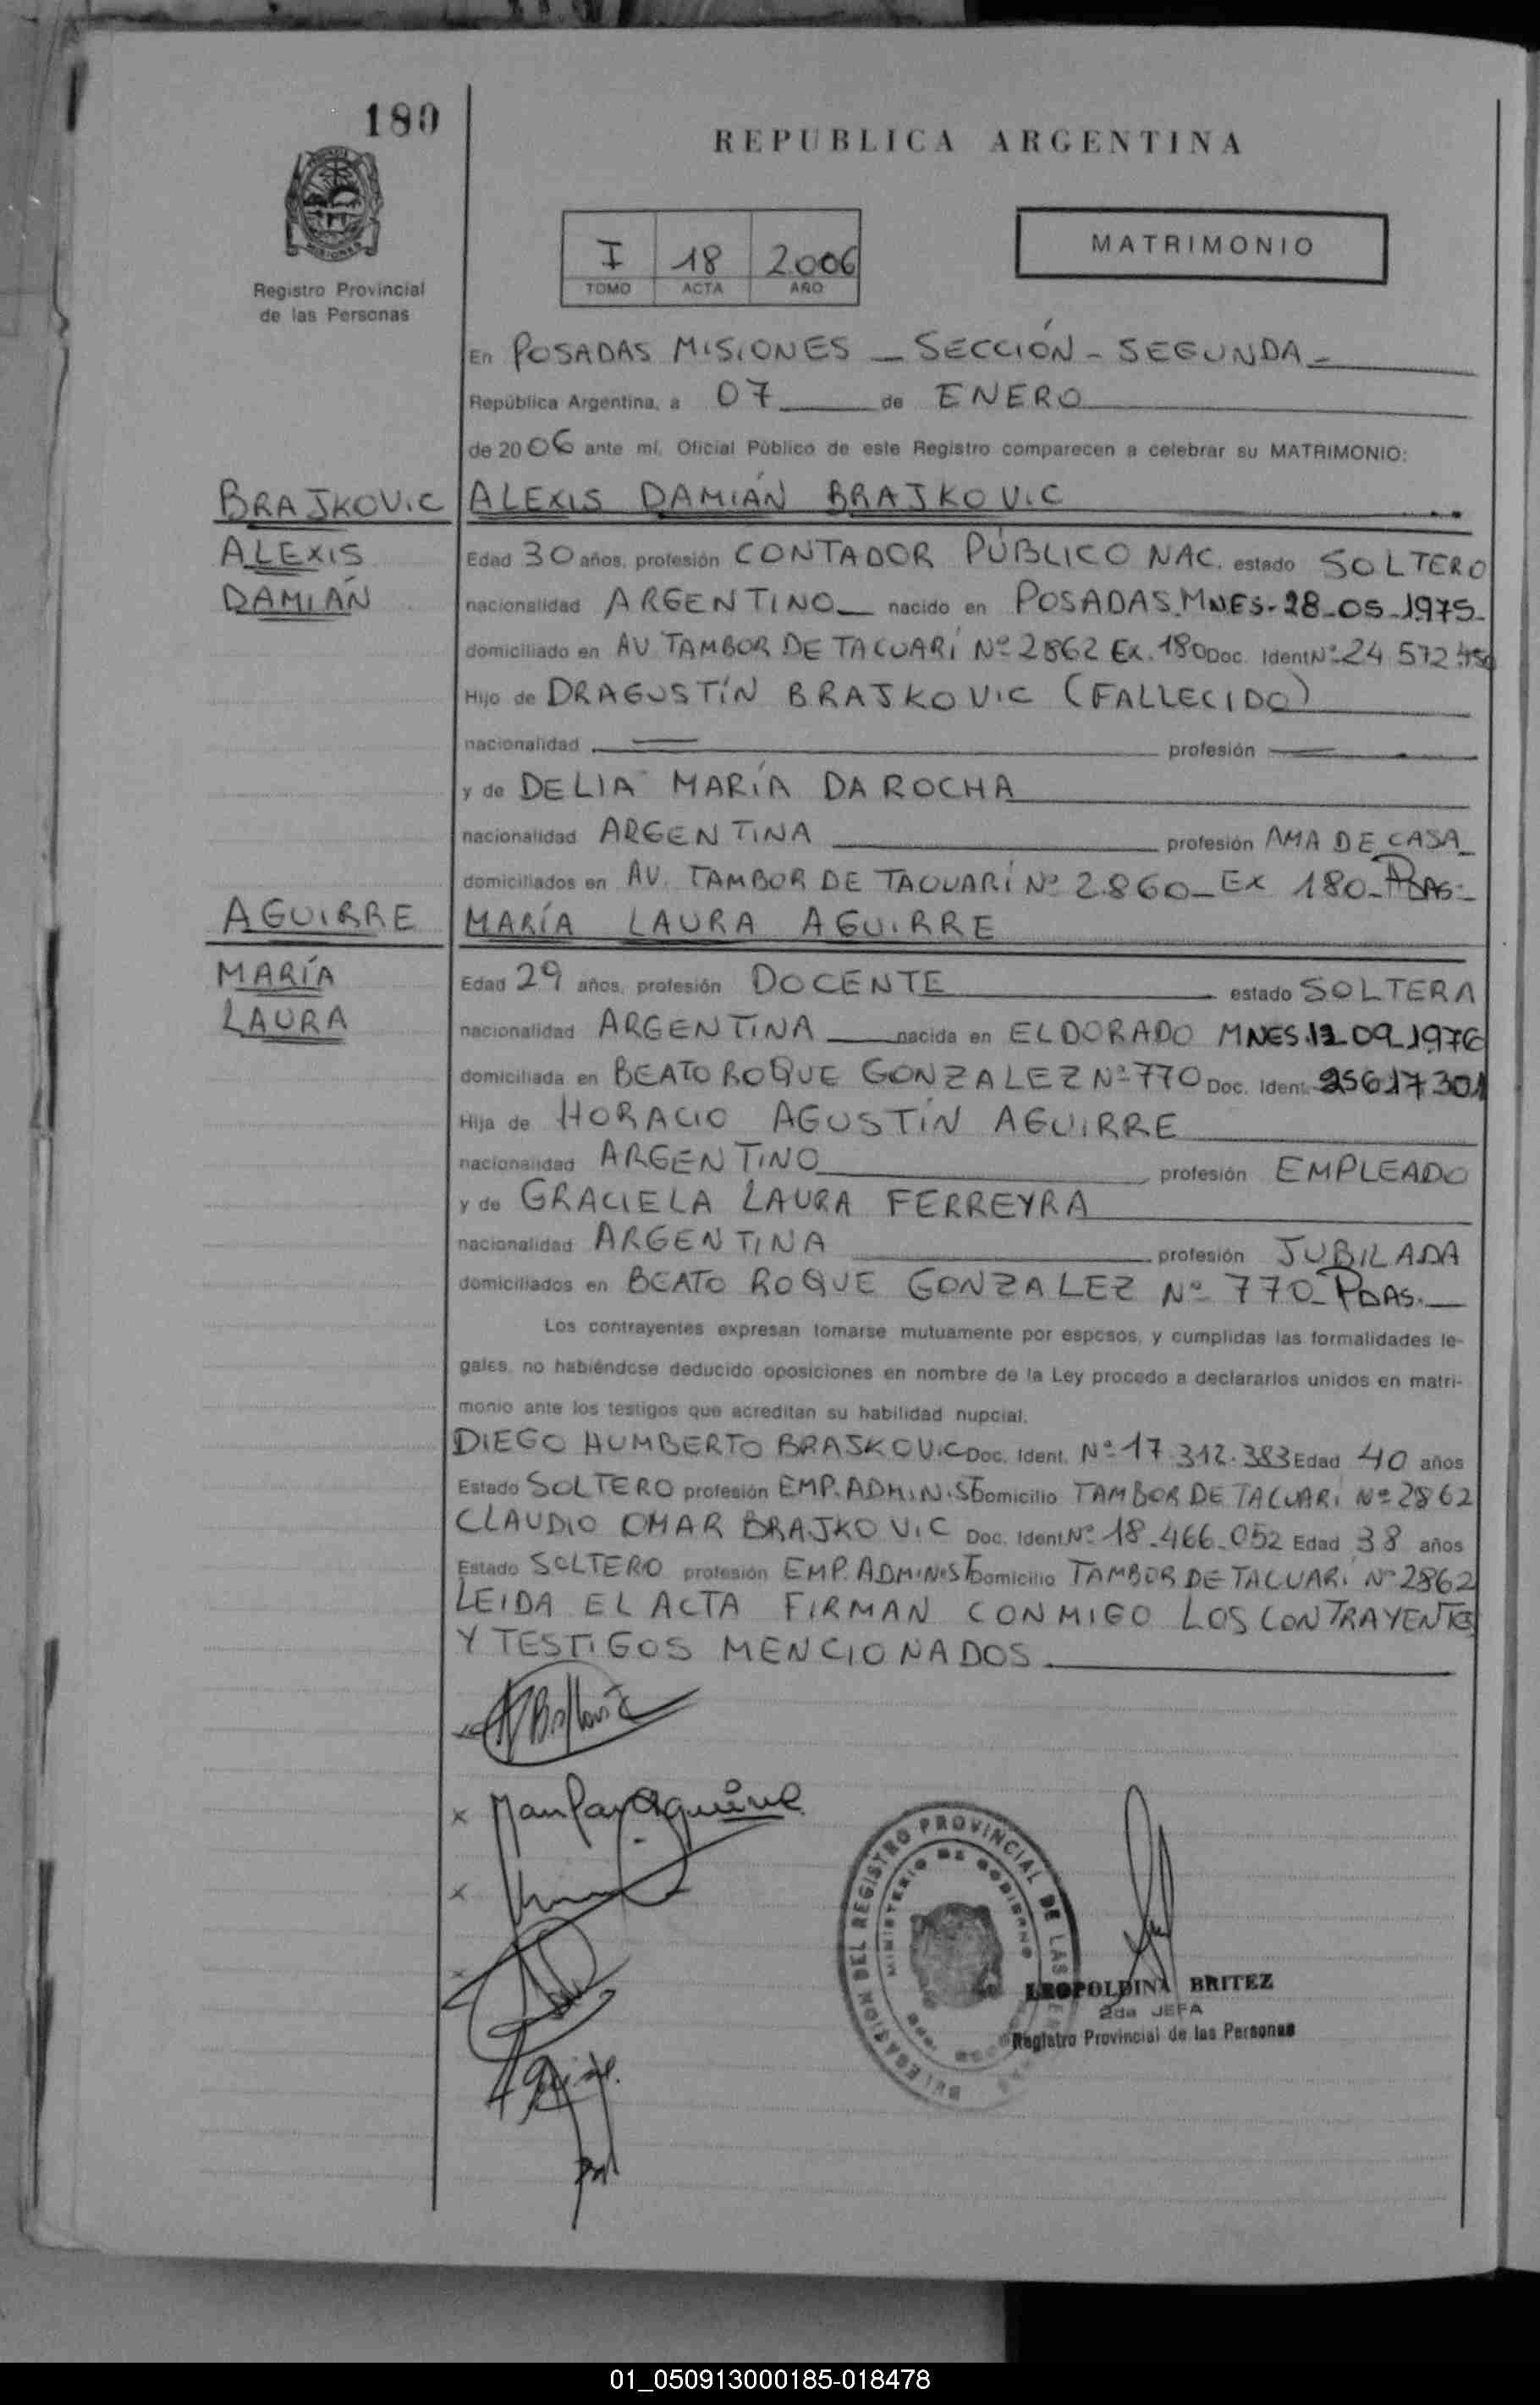 180
REPUBLICA ARGENTINA
MISIONES
Registro Provincial
de las Personas
I 18 2006
TOMO ACTA AÑO
MATRIMONIO
En POSADAS MISIONES - SECCIÓN - SEGUNDA -
República Argentina, a 07 de ENERO
de 2006 ante mí, Oficial Público de este Registro comparecen a celebrar su MATRIMONIO:
BRAJKOVIC ALEXIS DAMIÁN BRAJKOVIC
ALEXIS
DAMIÁN
Edad 30 años, profesión CONTADOR PÚBLICO NAC. estado SOLTERO
nacionalidad ARGENTINO nacido en POSADAS.MNES-28-05-1975-
domiciliado en AV. TAMBOR DE TACUARÍ Nº 2862 EX.180 Doc. Ident Nº 24.572
Hijo de DRAGUSTÍN BRAJKOVIC (FALLECIDO)
nacionalidad profesión
y de DELIA MARÍA DA ROCHA
nacionalidad ARGENTINA profesión AMA DE CASA
domiciliados en AV. TAMBOR DE TACUARÍ Nº 2.860 - EX 180 - PDAS.-
AGUIRRE MARÍA LAURA AGUIRRE
MARÍA
LAURA
Edad 29 años, profesión DOCENTE estado SOLTERA
nacionalidad ARGENTINA nacida en ELDORADO MNES. 09-1976
domiciliada en BEATO ROQUE GONZALEZ Nº 770 Doc. Ident. 25617301
Hija de HORACIO AGUSTÍN AGUIRRE
nacionalidad ARGENTINO profesión EMPLEADO
y de GRACIELA LAURA FERREYRA
nacionalidad ARGENTINA profesión JUBILADA
domiciliados en BEATO ROQUE GONZALEZ Nº 770 - PDAS.
Los contrayentes expresan tomarse mutuamente por esposos, y cumplidas las formalidades le-
gales, no habiéndose deducido oposiciones en nombre de la Ley procedo a declararlos unidos en matri-
monio ante los testigos que acreditan su habilidad nupcial.
DIEGO HUMBERTO BRAJKOVIC Doc. Ident. Nº 17.312.383 Edad 40 años
Estado SOLTERO profesión EMP. ADMINIST Domicilio TAMBOR DE TACUARÍ Nº 2862
CLAUDIO OMAR BRAJKOVIC Doc. Ident Nº 18.466.052 Edad 38 años
Estado SOLTERO profesión EMP. ADMINIST Domicilio TAMBOR DE TACUARÍ Nº 2862
LEIDA EL ACTA FIRMAN CONMIGO LOS CONTRAYENTES
Y TESTIGOS MENCIONADOS
DELEGACION DEL REGISTRO PROVINCIAL DE LAS
MINISTERIO DE GOBIERNO
LEOPOLDINA BRITEZ
2da JEFA
Registro Provincial de las Personas
01_050913000185-018478